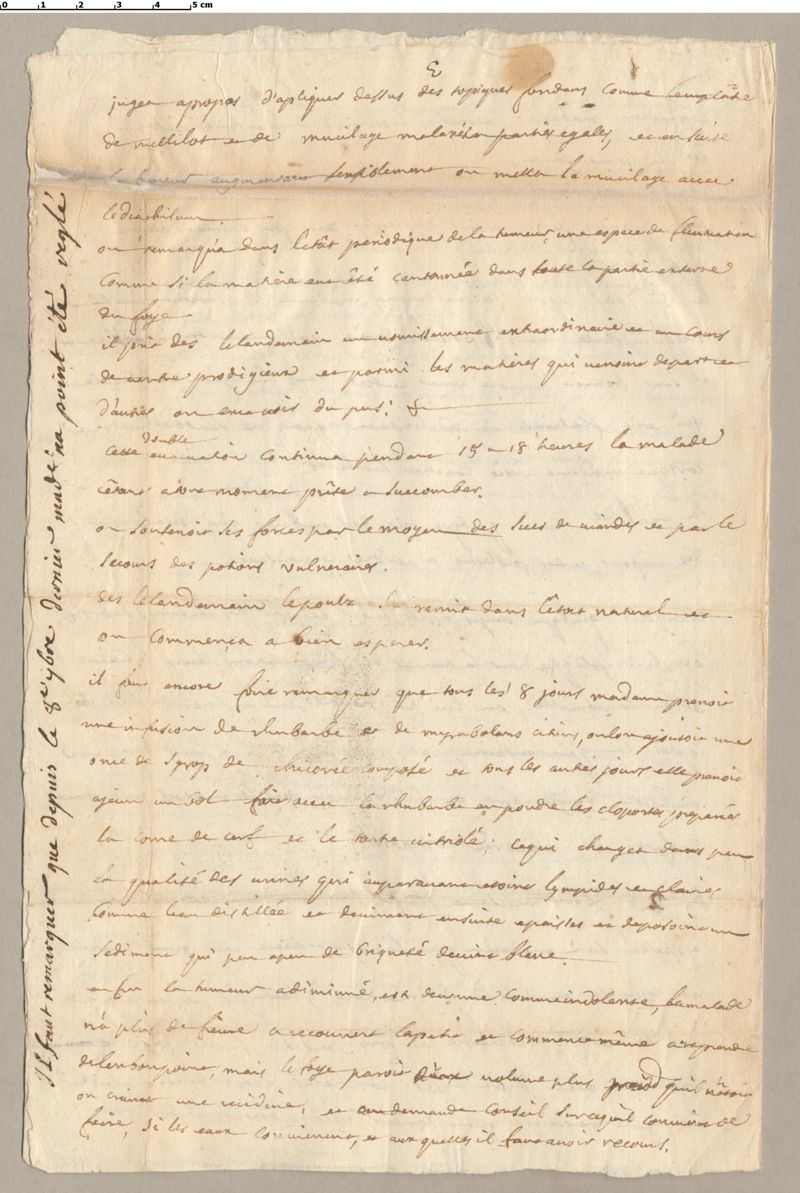 0 1 2 3 4 5 cm
3
jugea appropos d'apliquer dessus des topiques fondans comme l'emplâtre
de mellilot et de mucilage partiës egales, et ensuite
la tumeur augmentant on mella le mucilage avec
le diachilum.
on remarqua dans l'etât periodique de la tumeur, une espece de fluctuation
comme si la matière eut été cantonnée dans toute la partie externe
du foye
il prit des le landemain un vomissement extraordinaire et un cours
de ventre prodigieux et parmi les matières qui venoint de part et
d'autres on envoioit du pus. &
cette double evacuation continua pendant 15 a 18 heures la malade
êtant a tout moment prête a succomber.
on soutenoit ses forces par le moyen des sucs de viandes et par le
secours des potions vulneraires.
des le landemain le poulx se remit dans l'êtat naturel et
on commença a bien esperer.
il faut encore faire remarquer que tous les 8 jours madame prenoit
une infusion de rhubarbe et de myrabolans citrins, ou lon ajoutoit une
once de syrop de chicorée composé et tous les autres jours elle prenoit
a jeun un bol fait avec la rhubarbe en poudre les cloportes preparés
la corne de cerf et le tartre vitriolé; ce qui changea dans peu
la qualité des urines qui auparavant etoint lympides et claires
comme l'eau distillée et devinrent ensuite epaisses et deposoint un
sediment qui peu apeu de briqueté devint blanc.
enfin la tumeur a diminué, est devenue comme indolente, la malade
n'a plus de fièvre a recouvert l'apetit et commence même a reprendre
de l'enbonpoint, mais le foye paroit volume plus qu'il n'êtoit
on craint une recidive, et on demande conseil sur ce qu'il convient de
faire, si les eaux conviennent, et aux quelles il faut avoir recours.
Il faut remarquer que depuis le 8e ybre dernier made n'a point été reglé